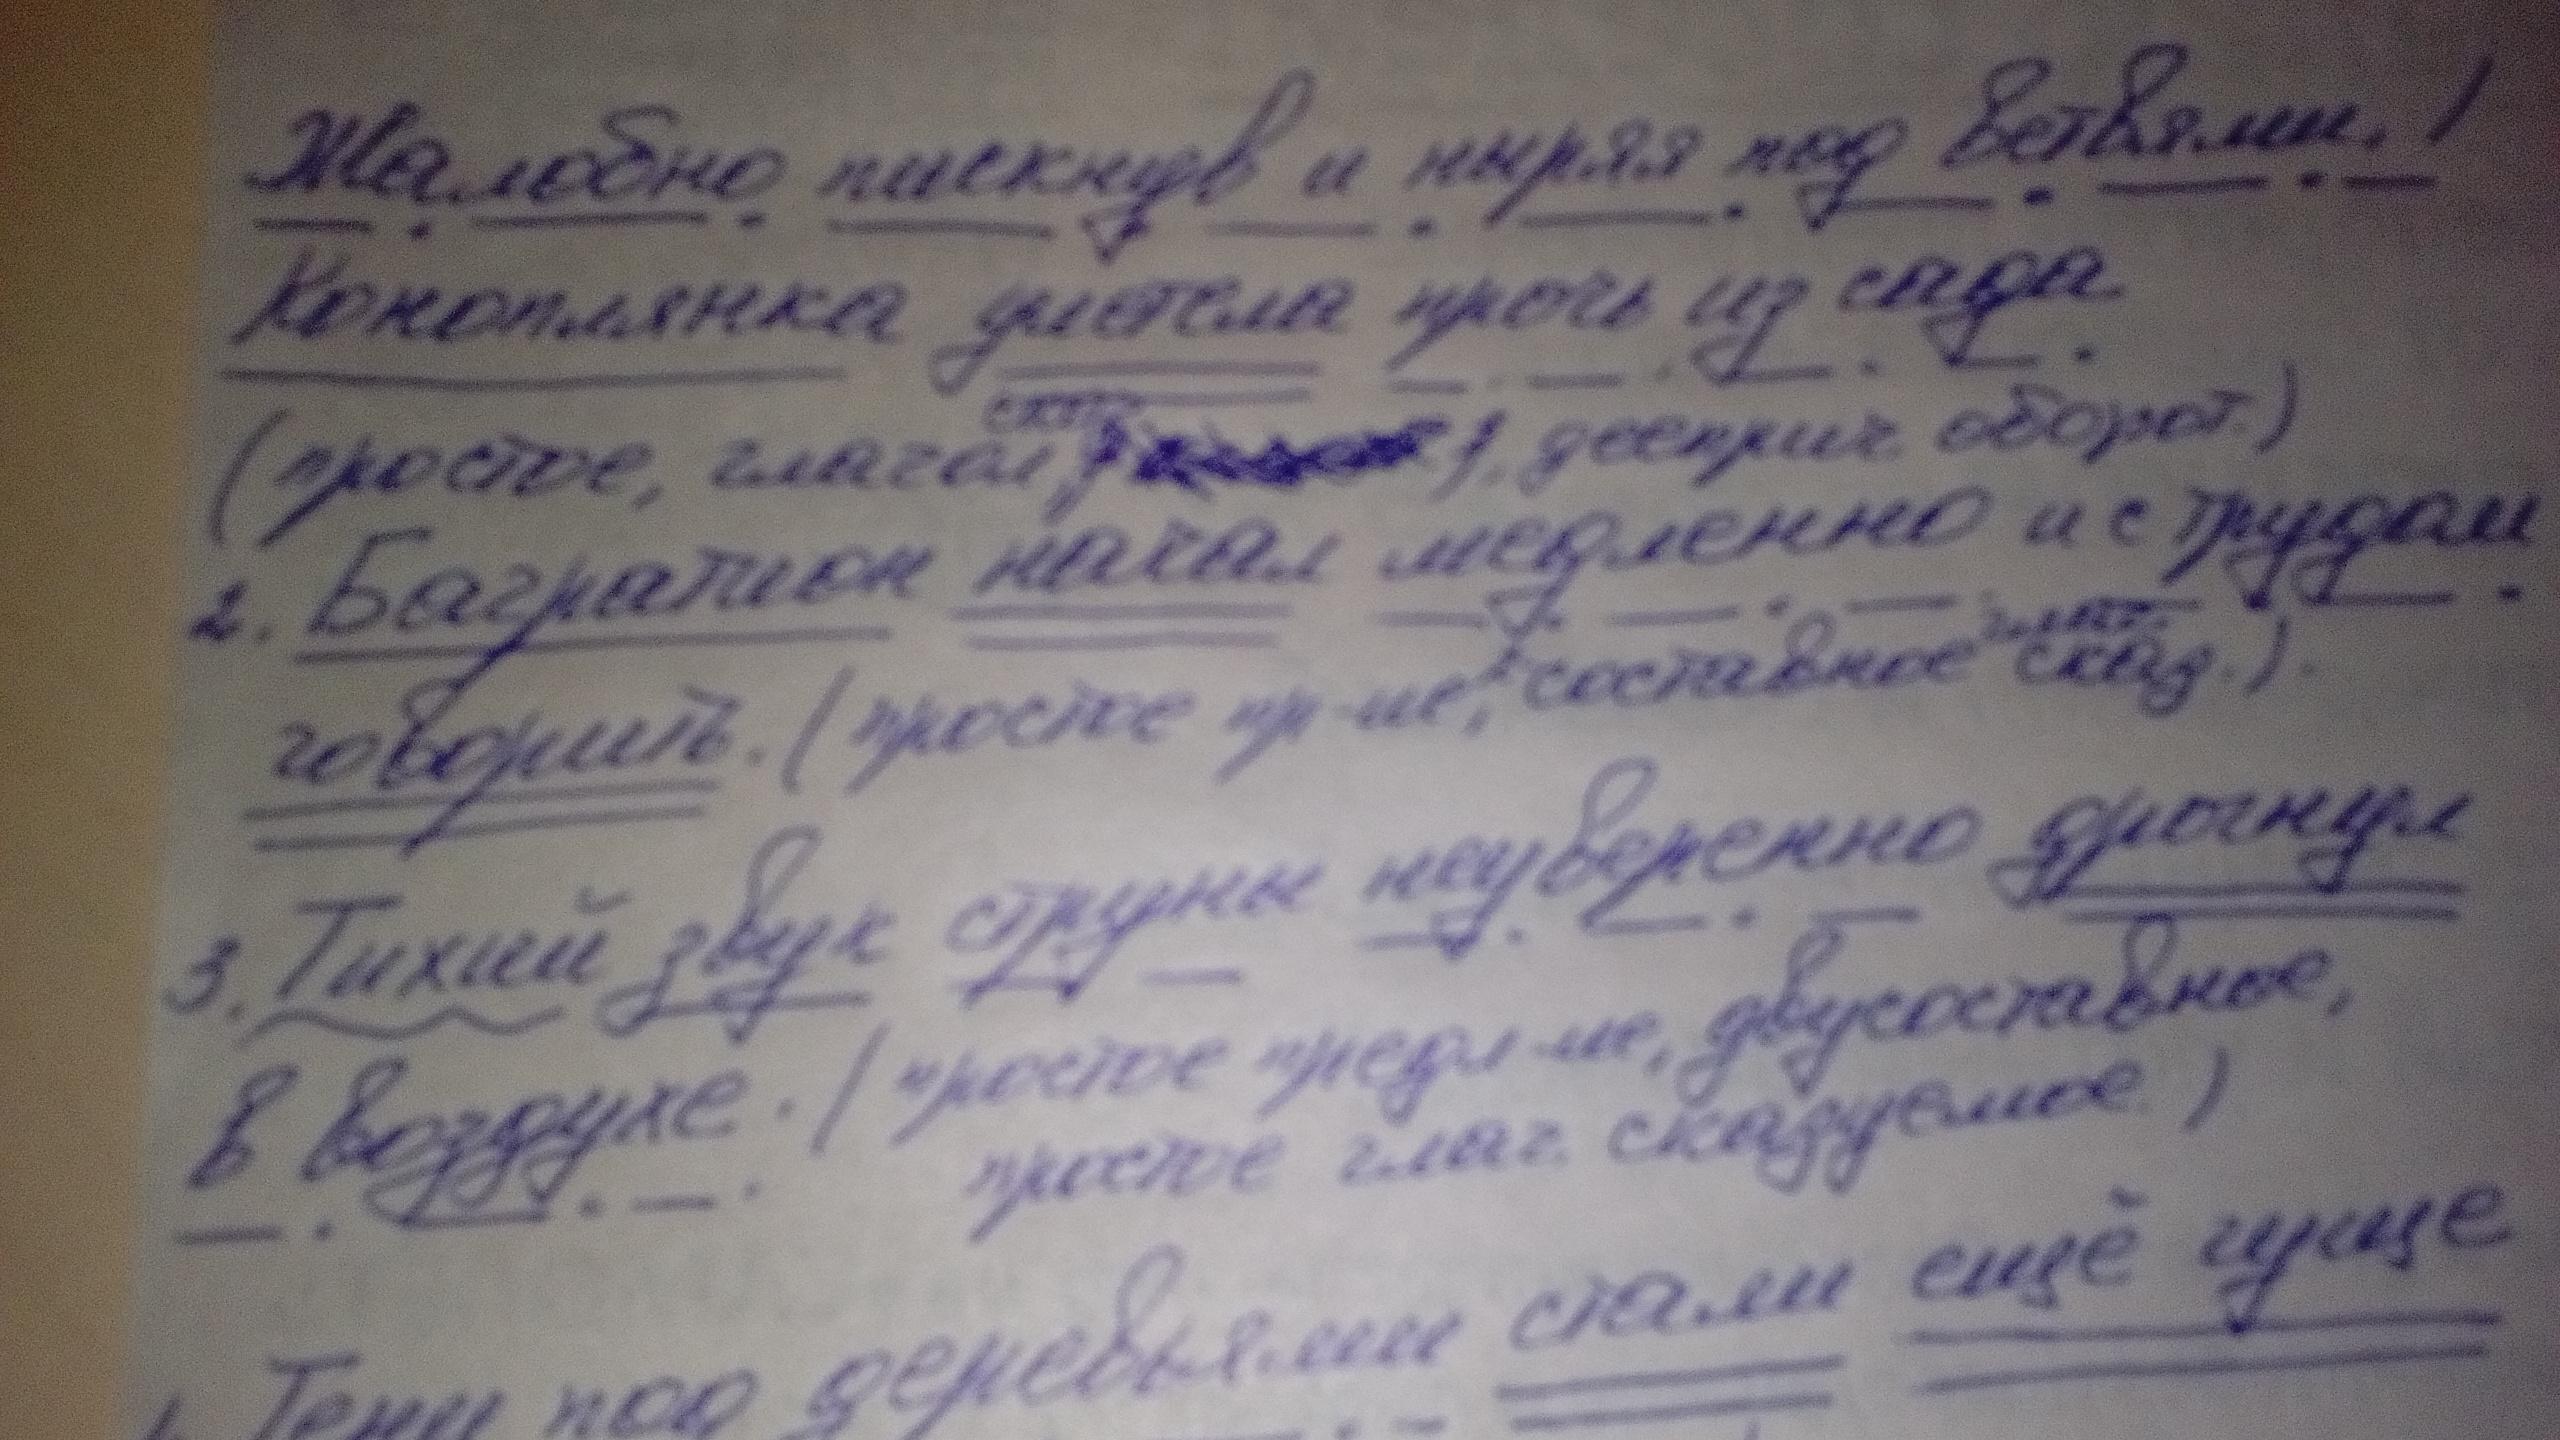 Жалобно пискнув и ныряя под ветвями, /
Коноплянка улетела прочь из сада.
сказ.
(простое, глагол , дееприч. оборот.)
2. Багратион начал медленно и с трудом
глаг.
говорить. (простое пр-ие, составное сказ.).
3. Тихий звук струны неуверенно дрогнул
в воздухе. (простое предл-ие, двусоставное,
простое глаг. сказуемое.)
Тени под деревьями стали ещё гуще